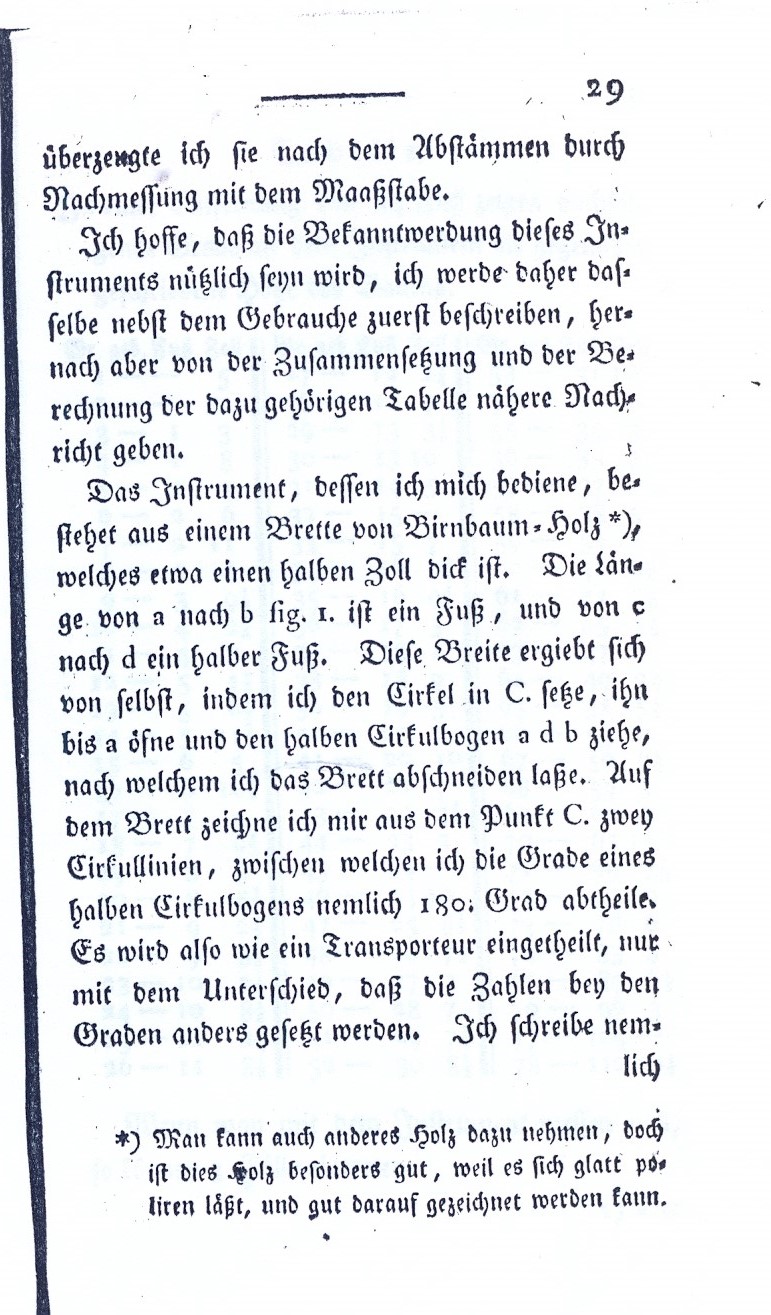 29
überzeugte ich sie nach dem Abstämmen durch
Nachmessung mit dem Maaßstabe.
Ich hoffe, daß die Bekanntwerdung dieses In-
struments nützlich seyn wird, ich werde daher das-
selbe nebst dem Gebrauche zuerst beschreiben, her-
nach aber von der Zusammensetzung und der Be-
rechnung der dazu gehörigen Tabelle nähere Nach-
richt geben.
Das Instrument, dessen ich mich bediene, be-
stehet aus einem Brette von Birnbaum-Holz *),
welches etwa einen halben Zoll dick ist. Die Län-
ge von a nach b fig. 1. ist ein Fuß, und von c
nach d ein halber Fuß. Diese Breite ergiebt sich
von selbst, indem ich den Cirkel in C. setze, ihn
bis a öfne und den halben Cirkulbogen a d b ziehe,
nach welchem ich das Brett abschneiden laße. Auf
dem Brett zeichne ich mir aus dem Punkt C. zwey
Cirkullinien, zwischen welchen ich die Grade eines
halben Cirkulbogens nemlich 180. Grad abtheile.
Es wird also wie ein Transporteur eingetheilt, nur
mit dem Unterschied, daß die Zahlen bey den
Graden anders gesetzt werden. Ich schreibe nem-
lich
*) Man kann auch anderes Holz dazu nehmen, doch
ist dies Holz besonders gut, weil es sich glatt po-
liren läßt, und gut darauf gezeichnet werden kann.